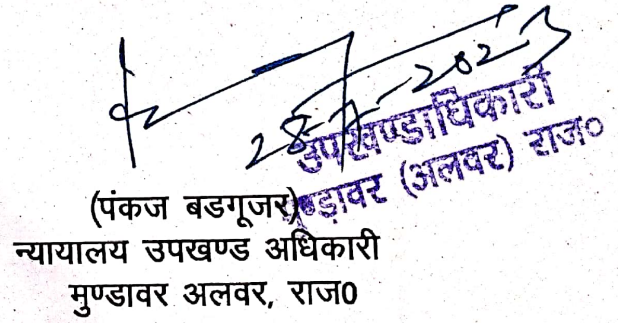 28-7-2023
उपखण्डाधिकारी
मुण्डावर (अलवर) राज०
(पंकज बडगूजर)
न्यायालय उपखण्ड अधिकारी
मुण्डावर अलवर, राज0